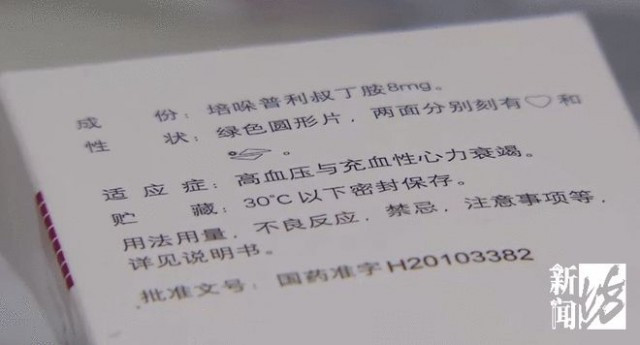 成　份：培哚普利叔丁胺8mg。
性　状：绿色圆形片，两面分别刻有♡和
。
适应症：高血压与充血性心力衰竭。
贮　藏：30℃以下密封保存。
用法用量，不良反应，禁忌，注意事项等，
详见说明书。
批准文号：国药准字H20103382
新闻坊